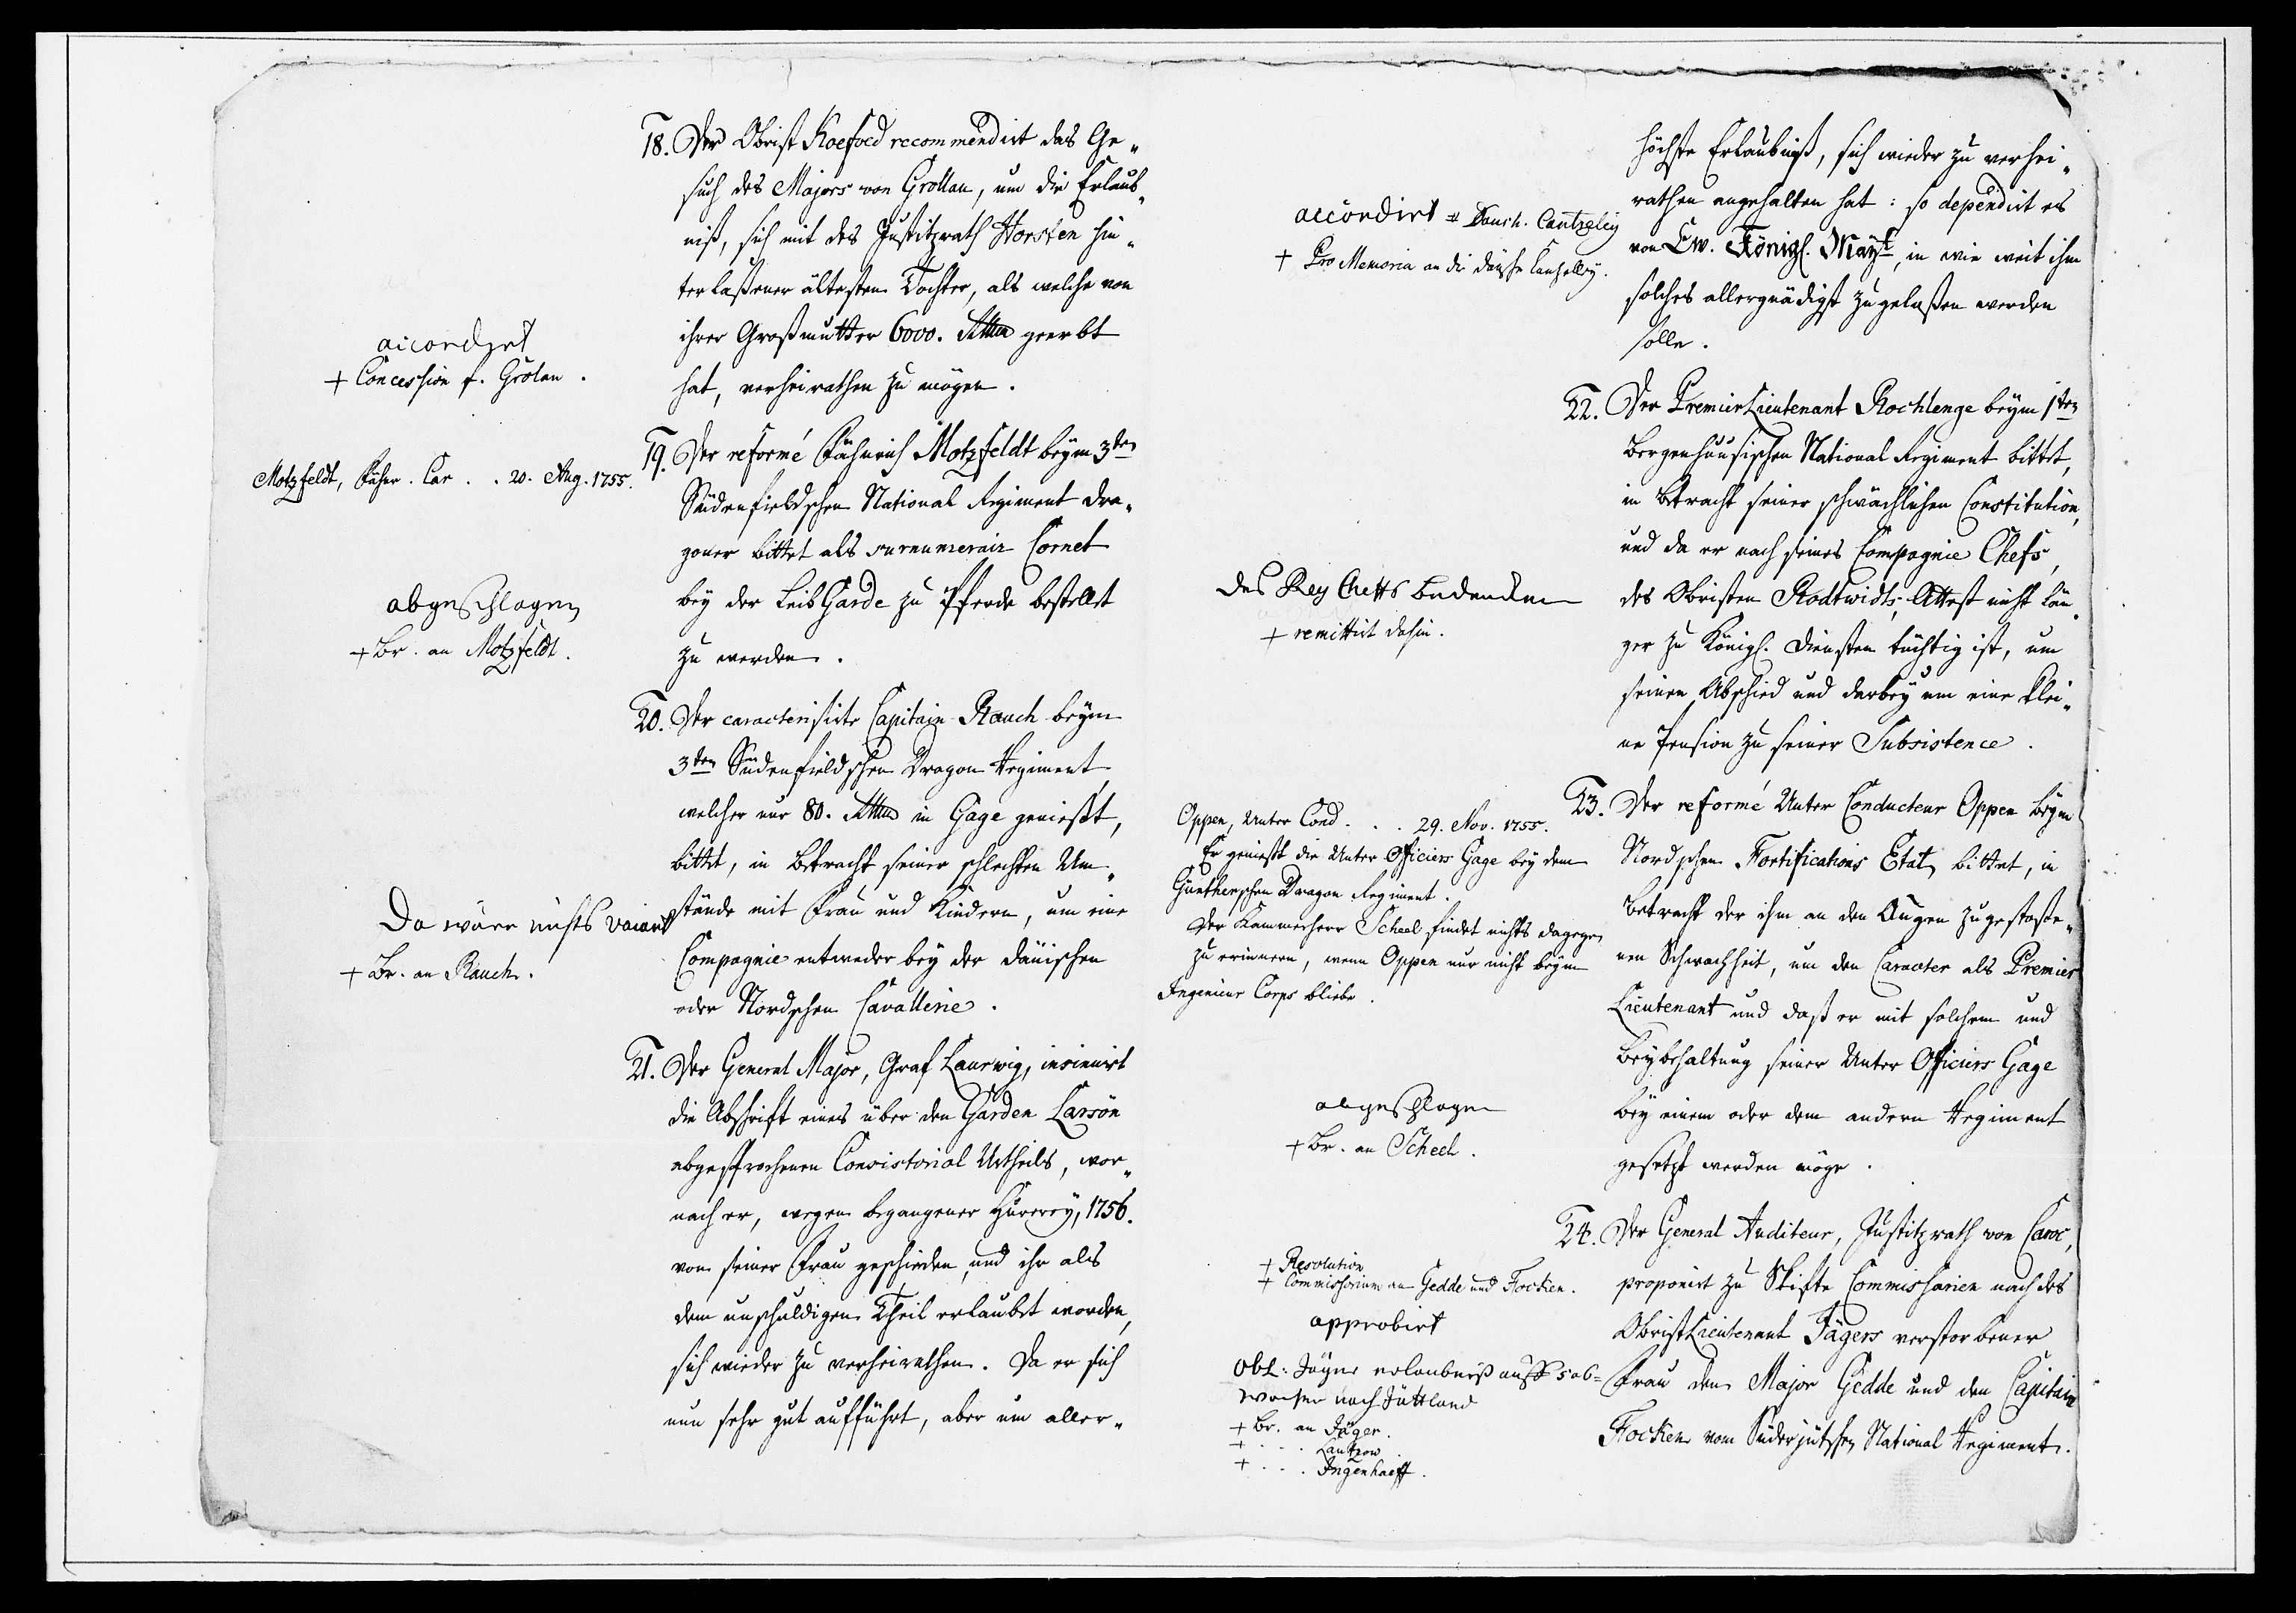 18. Der Obrist Koefoed recommendirt das Ge„
such des Majors von Grollau, um die Erlaub„
niß, sich mit des Justitzrath Horsten hin„
terlaßener ältesten Tochter, als welche von
ihrer Großmutter 6000. Rthlr geerbt
hat, verheirathen zu mögen.
accordirt
+ Concession f. Grolau.
19. Der reformé Fähnrich Motzfeldt beym 3ten
Südenfieldschen National Regiment Dra„
goner bittet als surnumerair Cornet
bey der Leib Garde zu Pferde bestellet
zu werden.
Motzfeldt, Fähnr. Car. . . 20. Aug. 1755.
abgeschlagen
+ Br. an Motzfeldt.
20. Der caracterisirte Capitain Rauch beym
3ten Südenfieldschen Dragon Regiment,
welcher nur 80. Rthlr in Gage genießt,
bittet, in Betracht seiner schlechten Um„
stände mit Frau und Kindern, um eine
Compagnie entweder bey der dänischen
oder Nordschen Cavallerie.
Da wäre nichts vacant
+ Br. an Rauch.
21. Der General Major, Graf Laurwig, insinuirt
die Abschrift eines über den Garden Larsön
abgesprochenen Consistorial Urtheils, wor„
nach er, wegen begangener Hurerey, 1756.
von seiner Frau geschieden, und ihr als
dem unschuldigen Theil erlaubet worden,
sich wieder zu verheirathen. Da er sich
nun sehr gut aufführt, aber um aller„
höchste Erlaubniß, sich wieder zu verhei„
rathen angehalten hat: so dependirt es
von Ew. Königl. Mayt, in wie weit ihm
solches allergnädigst zugelaßen werden
solle.
accordirt Dansch. Cantzeley
+ Pro Memoria an die dänsche Cantzelley.
22. Der Premier Lieutenant Rochlenge beym 1ten
Bergenhuusischen National Regiment bittet,
in Betracht seiner schwächlichen Constitution,
und da er nach seines Compagnie Chefs,
des Obristen Rodtwidts, Attest nicht län„
ger zu Königl. Diensten tüchtig ist, um
seinen Abschied und darbey um eine klei„
ne Pension zu seiner Subsistence.
des Reg Cheffs bedencken
+ remittirt dahin.
23. Der reformé Unter Conducteur Oppen beym
Nordschen Fortifications Etat, bittet, in
Betracht der ihm an den Augen zugestoße„
nen Schwachheit, um den Caracter als Premier
Lieutenant und daß er mit solchem und
Beybehaltung seiner Unter Officiers Gage
bey einem oder dem andern Regiment
gesetzt werden möge.
Oppen, Unter Cond. . . 29. Nov. 1755.
Er genießt die Unter Officiers Gage bey dem
Güntherschen Dragon Regiment.
Der Kammerherr Scheel findet nichts dagegen
zu erinnern, wenn Oppen nur nicht beym
Ingenieur Corps bliebe.
abgeschlagen
+ Br. an Scheel.
24. Der General Auditeur, Justitzrath von Caroc,
proponirt zu Skifte Commissarien nach des
Obrist Lieutenant Jägers verstorbener
Frau den Major Gedde und den Capitain
Flocken vom Süderjütschen National Regiment.
+ Resolution
+ Commissorium an Gedde und Flocken.
approbirt
ObL: Jäger erlaubniß auff 5 a 6=
wochen nach Jüttland
+ Br. an Jäger.
+ . . . Lantzow.
+ . . . Ingenhaeff.